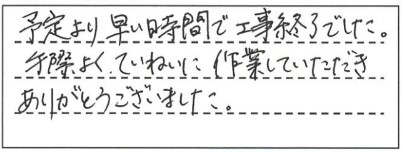 予定より早い時間で工事終了でした。
手際よく、ていねいに作業していただき
ありがとうございました。